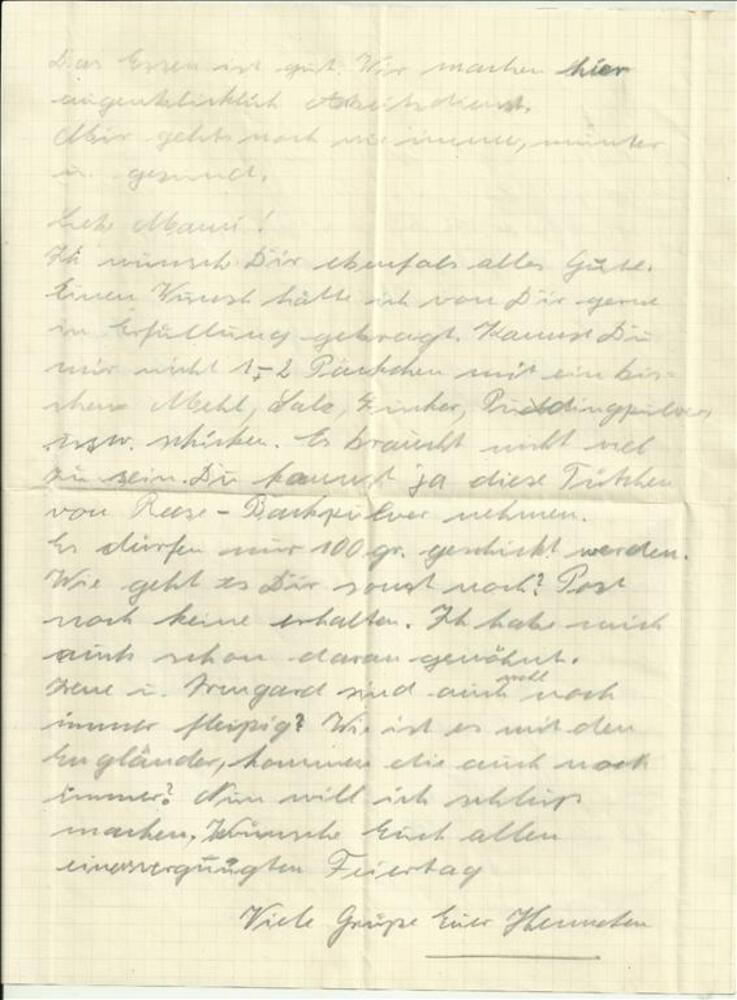 Das Essen ist gut. Wir machen hier
augenblicklich Arbeitsdienst.
Mir gehts noch wie immer, munter
u. gesund.
Liebe Mami!
Ich wünsch Dir ebenfals alles Gute.
Einen Wunsch hätte ich von Dir gerne
in Erfüllung gebragt. Kannst Du
mir nicht 1-2 Päckchen mit ein bis-
chen Mehl, Salz, Zucker, Puddingpulver
usw. schicken. Es braucht nicht viel
zu sein. Du kannst ja diese Tütchen
von Reese-Backpulver nehmen.
Es dürfen nur 100 gr. geschickt werden.
Wie geht es Dir sonst noch? Post
noch keine erhalten. Ich habe mich
auch schon daran gewöhnt.
Irene u. Irmgard sind auch wohl noch
immer fleißig? Wie ist es mit den
Engländer, kommen die auch noch
immer? Nun will ich schluß
machen. Wünsche Euch allen
einen vergnügten Feiertag
Viele Grüße Euer